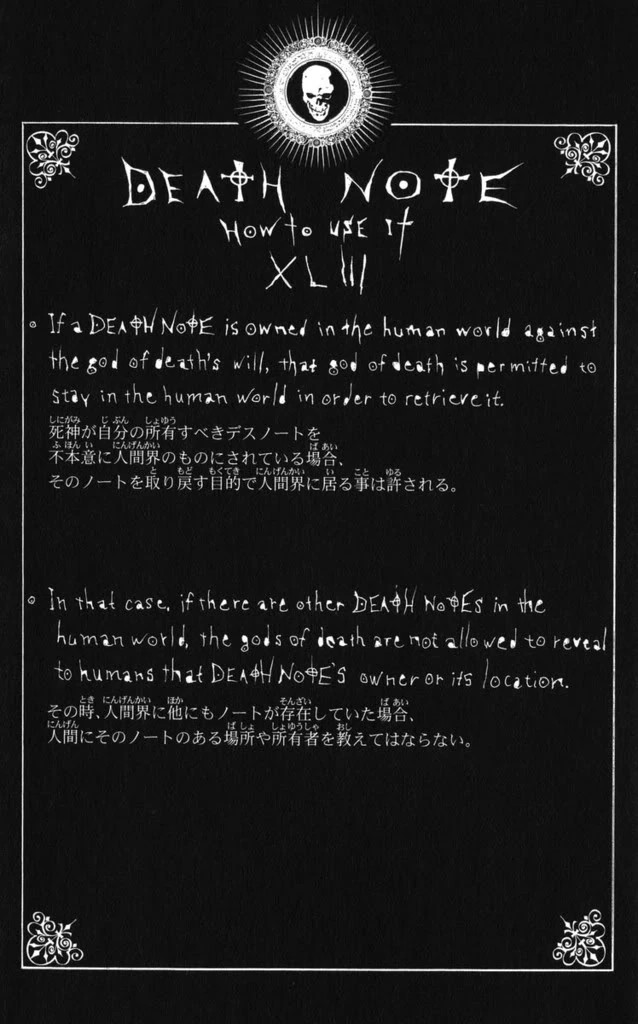 DEATH NOTE
HOW to USE It
XLIII
If a DEATH NOTE is owned in the human world against
the god of death's will, that god of death is permitted to
stay in the human world in order to retrieve it.
死神が自分の所有すべきデスノートを
不本意に人間界のものにされている場合、
そのノートを取り戻す目的で人間界に居る事は許される。
In that case, if there are other DEATH NOTEs in the
human world, the gods of death are not allowed to reveal
to humans that DEATH NOTE'S owner or its location.
その時、人間界に他にもノートが存在していた場合、
人間にそのノートのある場所や所有者を教えてはならない。